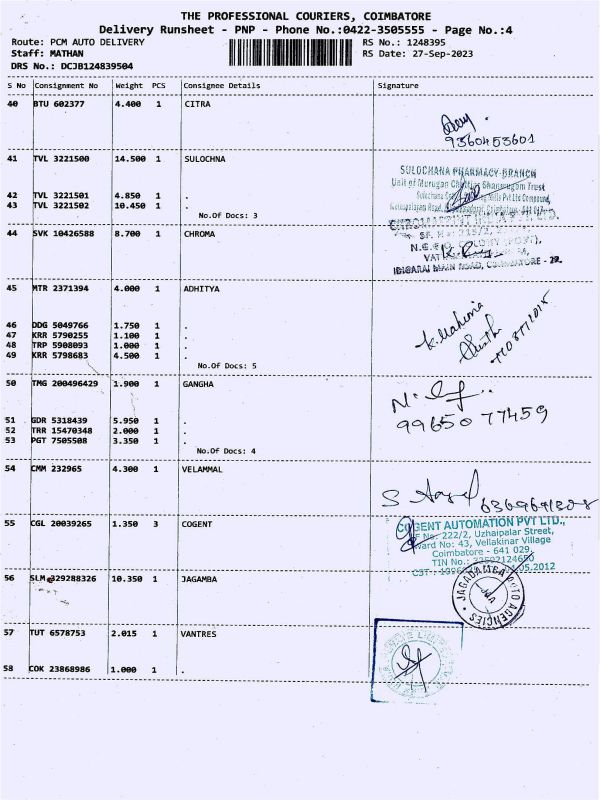 THE PROFESSIONAL COURIERS, COIMBATORE
Delivery Runsheet - PNP - Phone No.:0422-3505555 - Page No.:4
Route: PCM AUTO DELIVERY RS No.: 1248395
Staff: MATHAN RS Date: 27-Sep-2023
DRS No.: DCJB124839504
S No Consignment No Weight PCS Consignee Details Signature
40 BTU 602377 4.400 1 CITRA
9360453601
41 TVL 3221500 14.500 1 SULOCHNA
SULOCHANA PHARMACY-BRANCH
Unit of Murugan Shanmugam Trust
42 TVL 3221501 4.850 1 .
43 TVL 3221502 10.450 1 .
No.Of Docs: 3
44 SVK 10426588 8.700 1 CHROMA
IDIGARAI MAIN ROAD, COIMBATORE - 22.
45 MTR 2371394 4.000 1 ADHITYA
46 DDG 5049766 1.750 1 .
47 KRR 5790255 1.100 1 .
48 TRP 5908093 1.000 1 .
49 KRR 5798683 4.500 1 .
No.Of Docs: 5
50 TMG 200496429 1.900 1 GANGHA
99650 77459
51 GDR 5318439 5.950 1 .
52 TRR 15470348 2.000 1 .
53 PGT 7505508 3.350 1 .
No.Of Docs: 4
54 CMM 232965 4.300 1 VELAMMAL
55 CGL 20039265 1.350 3 COGENT
COGENT AUTOMATION PVT LTD.,
No: 222/2, Uzhaipalar Street,
Ward No: 43, Vellakinar Village
Coimbatore - 641 029.
TIN No.:
CST : .05.2012
56 SLM 329288326 10.350 1 JAGAMBA
JAGADAMBA AUTO AGENCIES
57 TUT 6578753 2.015 1 VANTRES
58 COK 23868986 1.000 1 .